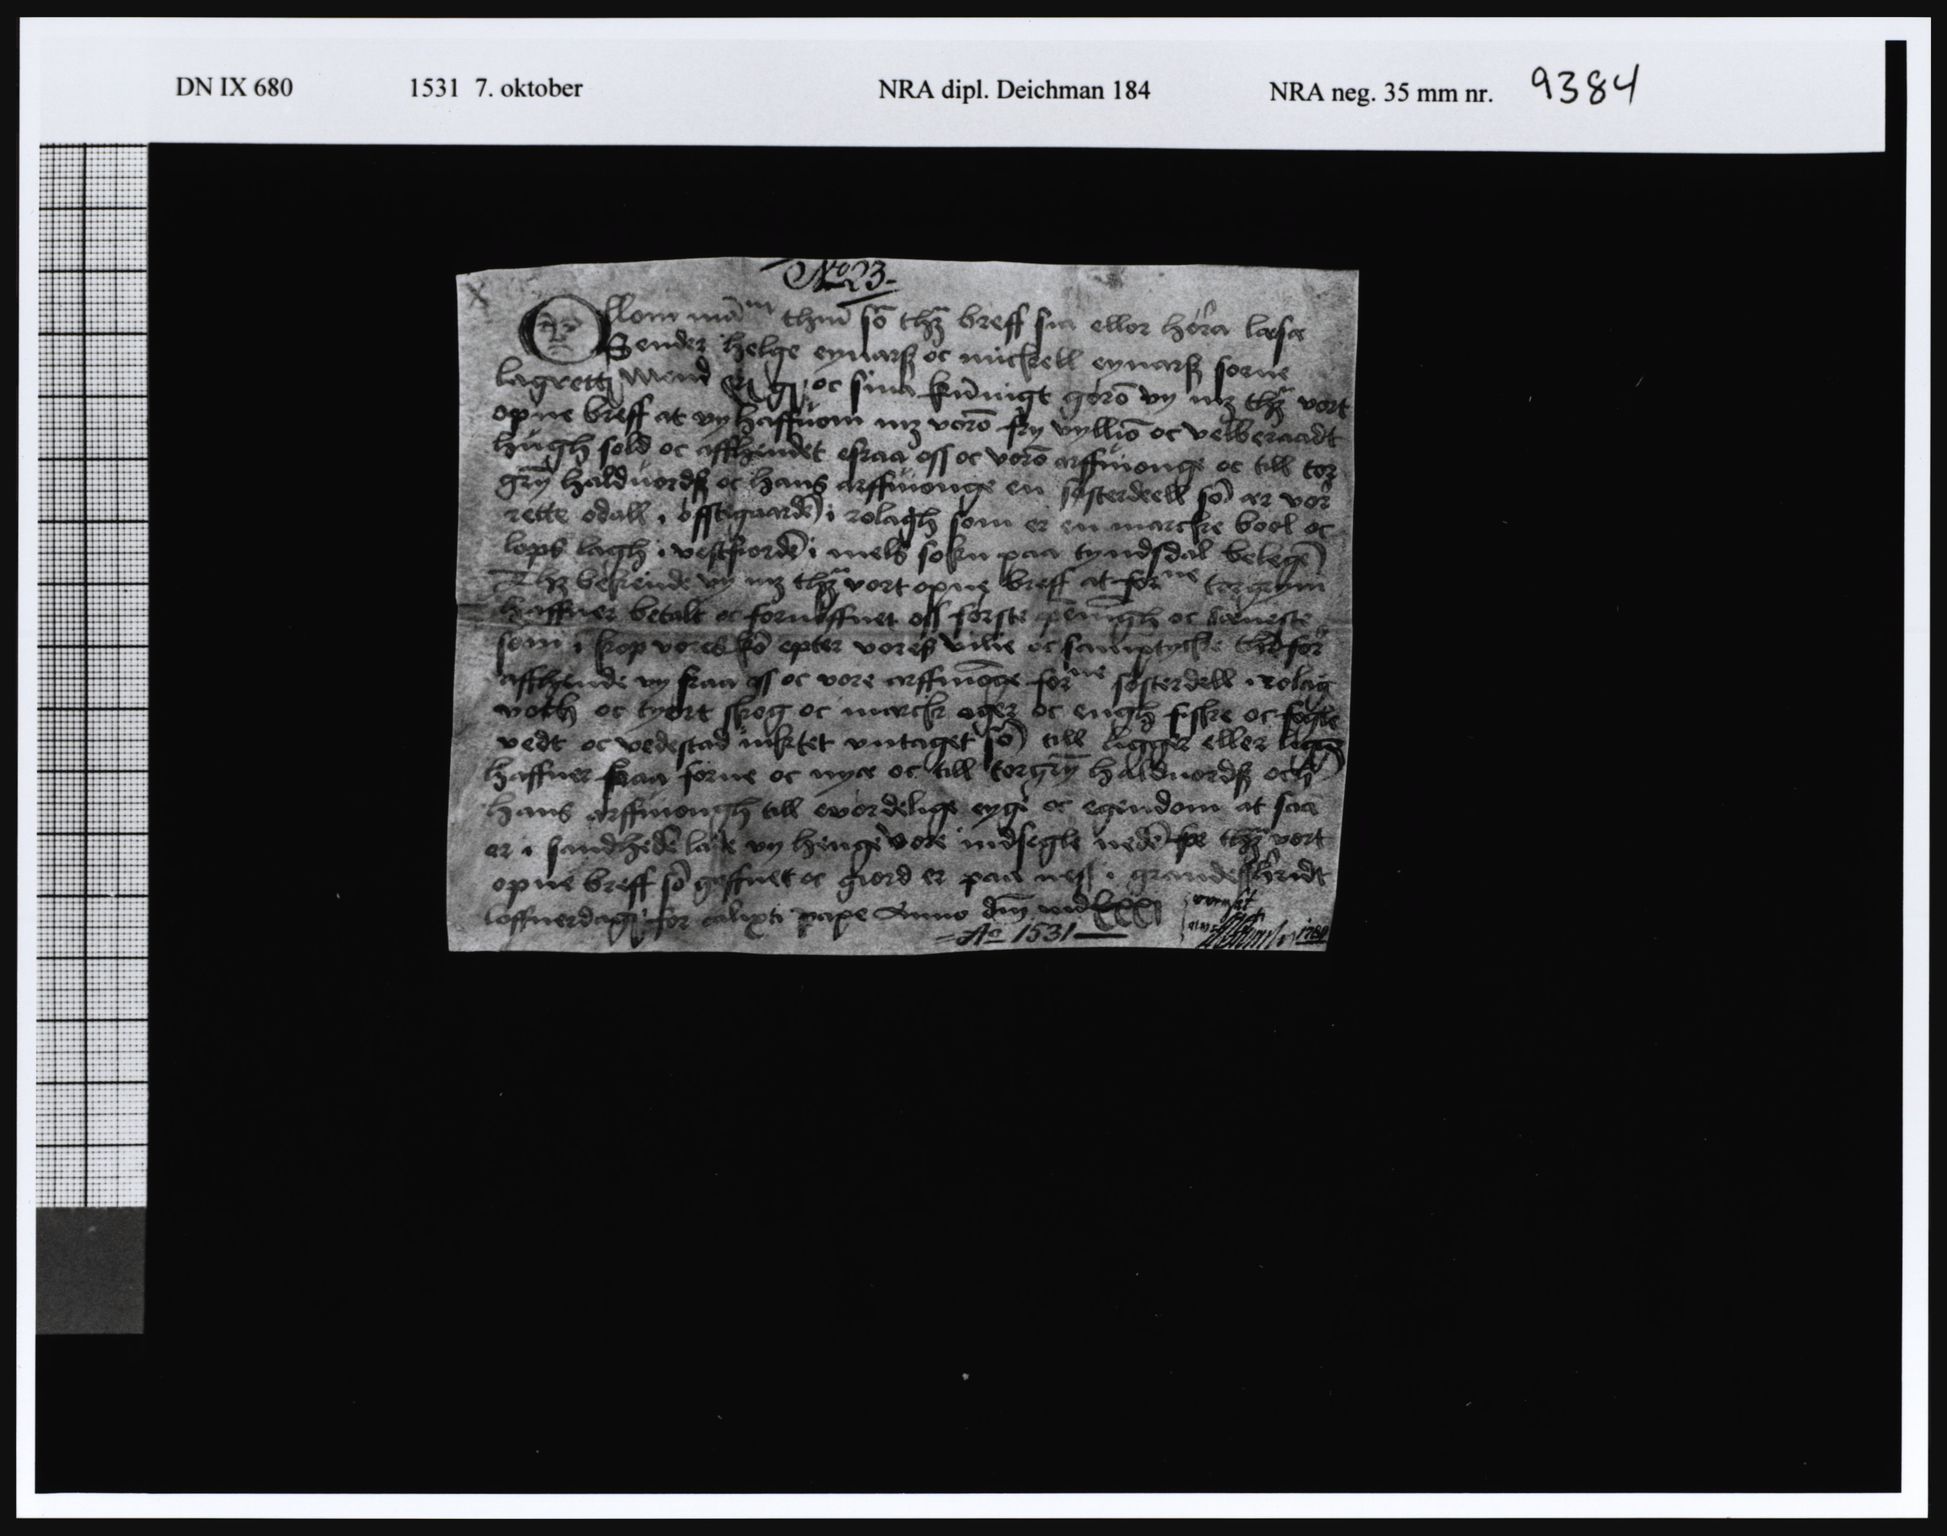 DN IX 680 1531 7. oktober NRA dipl. Deichman 184 NRA neg. 35 mm nr. 9384
No 23.
Ollom thm̄ so̅ thz breff sia ellor hóra læsæ
Sender helge eynarß oc mickell eynarß sorne
lagrettz Mend q g oc sina ku̅nigt góro̅ vy mz thz vort
opne breff at vy haffuom mz voro̅ fry vyllio̅ oc velberaadt
hugh sold oc affhendet efraa oss oc voro̅ arffuonge oc till tor
gry̅ halduordß oc hans arffuonge en sósterdeell so̅ ær vor
rette odall i óffstegaarde̅ i rolagh som er en marcke bool oc
lops lagh i vestfiorde̅ i mels sokn paa tyndsdal belege̅
Thz bekende vy mz thz vort opne breff at forne torgrym
haffuer betalt oc fornoffuet oss forste pe̅ni̅gh oc sæneste
som i kop vores ko̅ epter vores vilie oc samptycke ther for
affhende vy fraa oss oc vore arffuo̅ge forne sósterdell i rolag
voth oc tyort skog oc marck ager oc engh fiske oc fogle
vedt oc vedestad inktet vntaget so̅ till ligger eller ligget
haffuer fraa forne oc nyæ oc till torgry̅ halduordß och
hans arffuongh till evordelige eyge oc egendom at saa
er i sandhede̅ lade vy henge vore indsegle nede̅ for thz vort
opne breff so̅ geffuet oc giord er paa nes i grandeshe̅ridt
loffuerdag for calixti pape Anno dm̅ mdxxxi
= Ao 1531 —